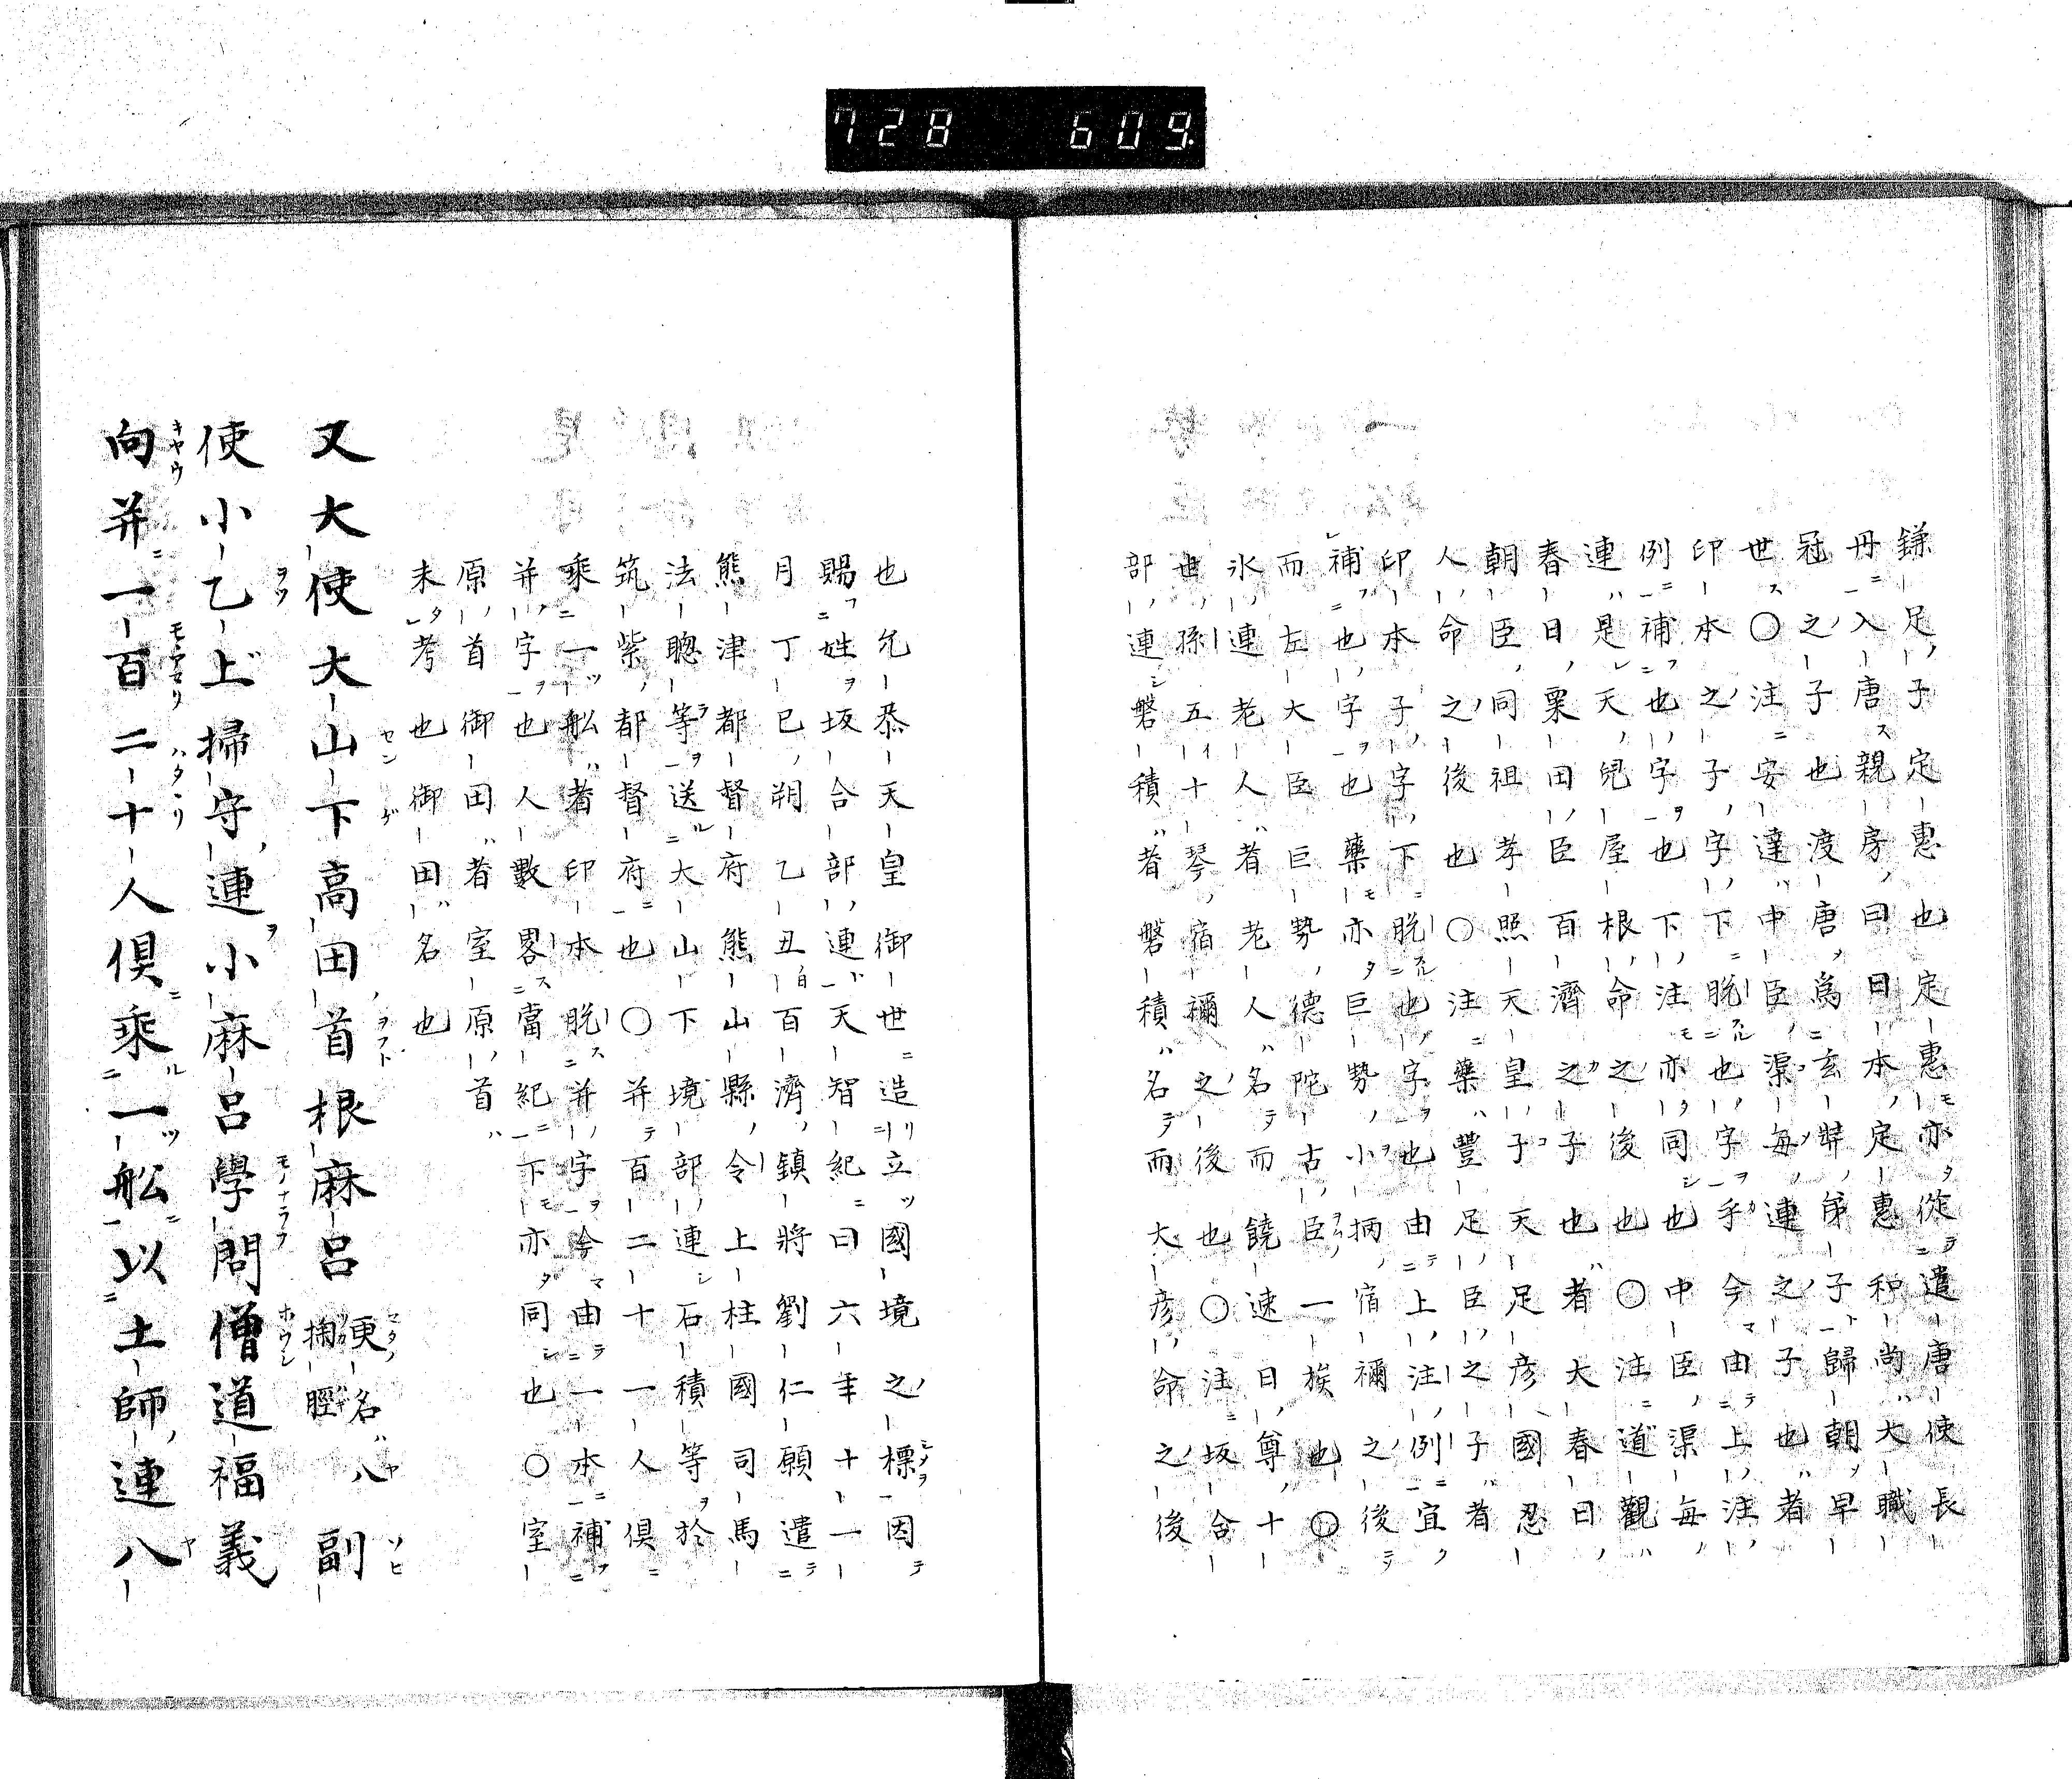 728 609
鎌足子定惠也定惠亦從遣唐使長
丹入唐親房曰日本定惠和尚大職
冠之子也渡唐爲玄奘弟子歸朝早
世〇注安達中臣渠毎連之子也者
印本之子字下脱也字乎今由上注
例補也字也下注亦同也中臣渠毎
連是天兒屋根命之後也〇注道觀
春日粟田臣百濟之子也者大春日
朝臣同祖孝照天皇子天足彦國忍
人命之後也〇注藥豐足臣之子者
印本子字下脱也字也由上注例宜
補也字也藥亦巨勢小柄宿禰之後
而左大臣巨勢德陀古臣一族也〇
氷連老人者老人名而饒速日尊十
世孫五十琴宿禰之後也〇注坂合
部連磐積者磐積名而大彦命之後
也允恭天皇御世造立國境之標因
賜姓坂合部連天智紀曰六年十一
月丁巳朔乙丑百濟鎮將劉仁願遣
熊津都督府熊山縣令上柱國司馬
法聰等送大山下境部連石積等於
筑紫都督府也〇并百二十一人俱
乘一舩者印本脱并字今由一本補
并字也人數畧當紀下亦同也〇室
原首御田者室原首
未考也御田名也
又大使大山下高田首根麻呂更名八掬脛副
使小乙上掃守連小麻呂學問僧道福義
向并一百二十人俱乘一舩以土師連八